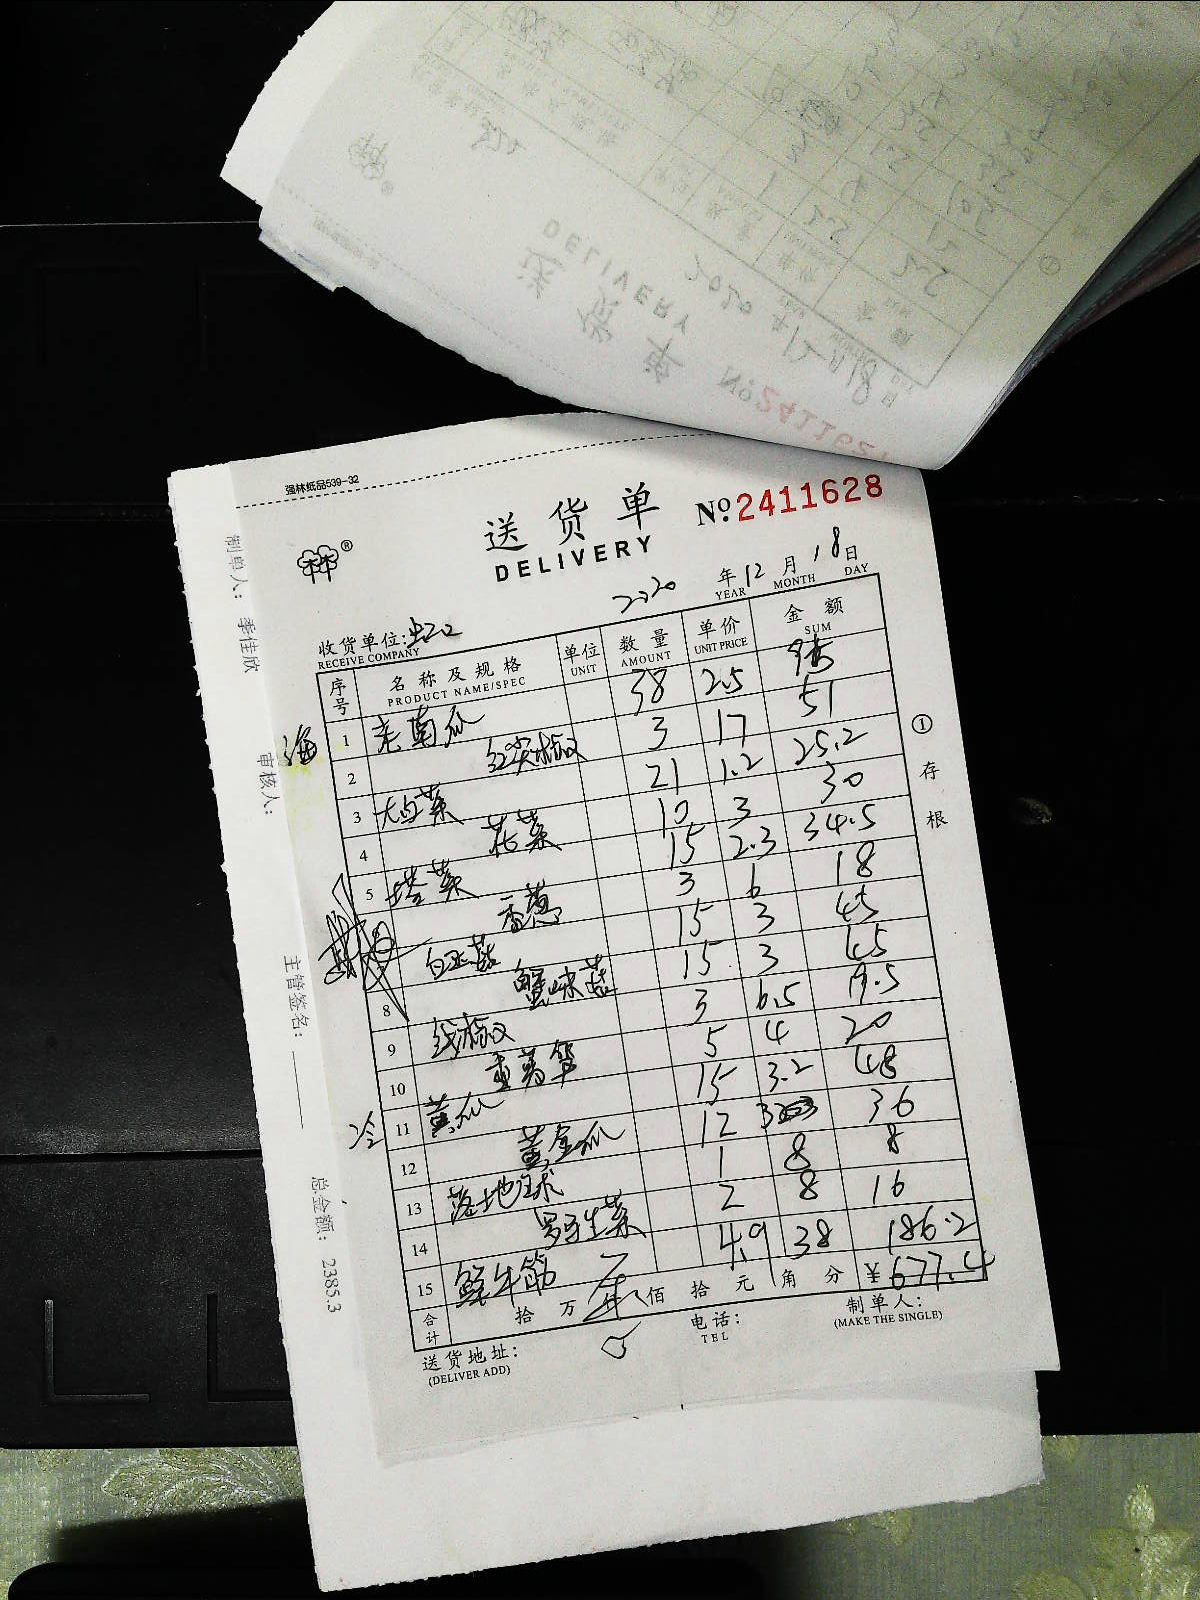 强林纸品539-32
送货单
DELIVERY
№ 2411628
林®
2020 年 12 月 18 日
YEAR MONTH DAY
收货单位: 虹口
RECEIVE COMPANY
序号 名称及规格 单位 数量 单价 金额
PRODUCT NAME/SPEC UNIT AMOUNT UNIT PRICE SUM
海 1 老南瓜 38 2.5 95
2 红尖椒 3 17 51
3 大白菜 21 1.2 25.2
4 花菜 10 3 30
5 塔菜 15 2.3 34.5
香葱 3 6 18
白玉菇 15 3 45
8 蟹味菇 15 3 45
9 线椒 3 6.5 19.5
10 5 4 20
冷 11 黄瓜 15 3.2 48
12 黄金瓜 12 3 36
13 1 8 8
14 罗马生菜 2 8 16
15 鲜牛筋 4.9 38 186.2
合计 拾 万 仟 佰 拾 元 角 分 ¥677.4
送货地址:
(DELIVER ADD)
电话:
TEL
制单人:
(MAKE THE SINGLE)
① 存根
制单人: 季佳欣
审核人:
主管签名:
总金额: 2385.3
DELIVERY
送货单
2020 年 12 月 18 日